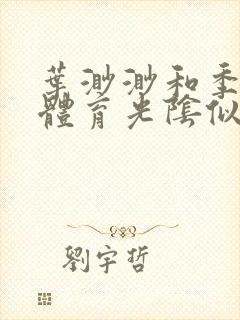 葉渺渺和季
體育光陰似
劉宇哲